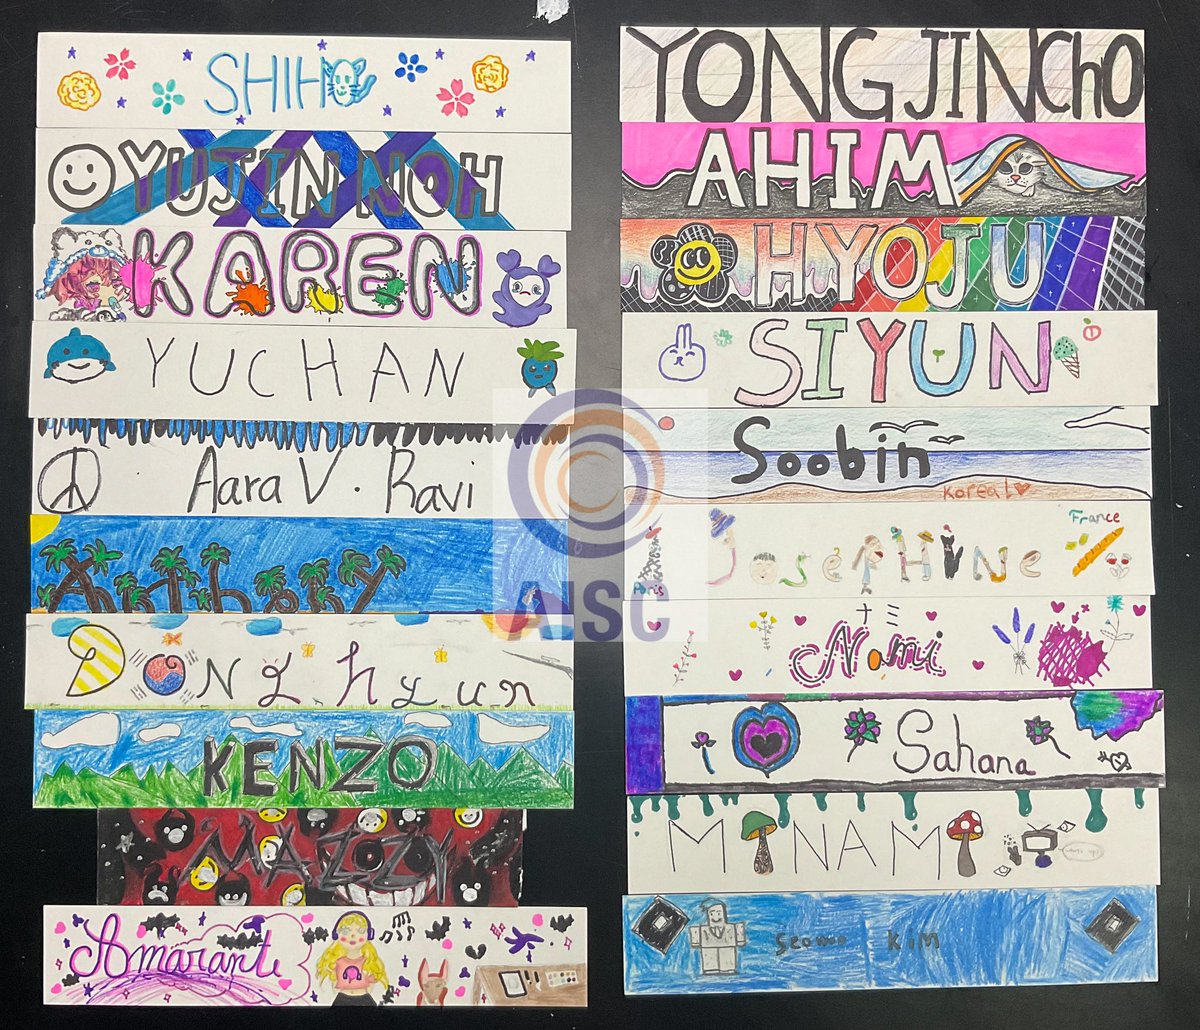 SHIHO
YUJIN NOH
KAREN
YUCHAN
Aara V. Ravi
Anthony
Donghyun
KENZO
MAZOZY
Amaranti
YONGJINChO
AHIM
HYOJU
SIYUN
Soobin
Korea!
Paris
JOSEPHiNe
France
ナミ
Nami
Sahana
MINAMI
KIM
AISC